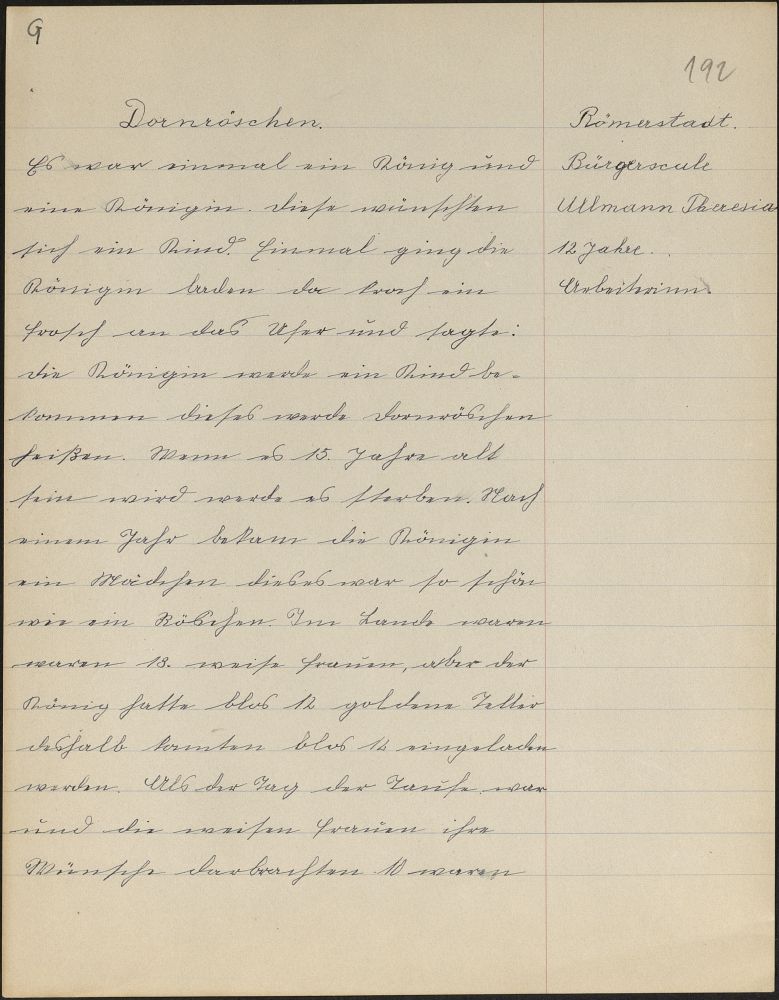 G
192
Dornröschen.
Es war einmal ein König und
eine Königin. Diese wünschten
sich ein Kind. Einmal ging die
Königin baden da kroch ein
Frosch an das Ufer und sagte:
die Königin werde ein Kind be-
kommen dieses werde Dornröschen
heißen. Wenn es 15. Jahre alt
sein wird werde es sterben. Nach
einem Jahr bekam die Königin
ein Mädchen dieses war so schön
wie ein Röschen. Im Lande waren
waren 13. weise Frauen, aber der
König hatte blos 12 goldene Teller
deshalb konnten blos 12 eingeladen
werden. Als der Tag der Taufe war
und die weisen Frauen ihre
Wünsche darbrachten waren
Römerstadt.
Bürgerscule
Ullmann Theresia
12 Jahre.
Arbeiterinn.